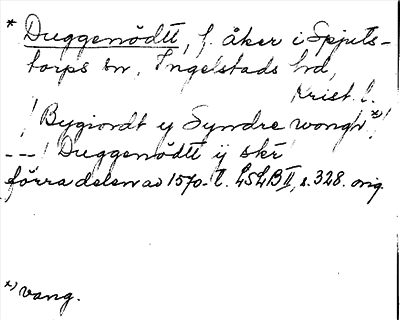 * Duggenödtt, f. åker i Spjuts-
torps sn, Ingelstads hd,
Krist. l.
/ Bygiordt y Syndre wongh *) /
--- / Duggenödtt ÿ skr /
förra delen av 1570-t. LSLB II, s. 328. orig.
*) vang.